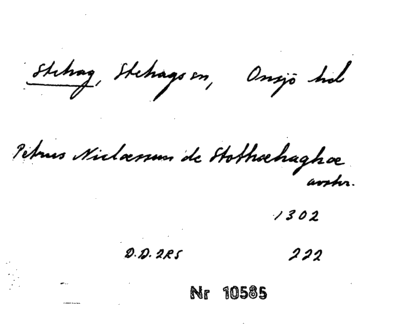 Stehag, Stehags sn, Onsjö hd
Petrus Niclæssun de Stothæhaghæ
avskr.
1302
D.D. 2R5 222
Nr 10585